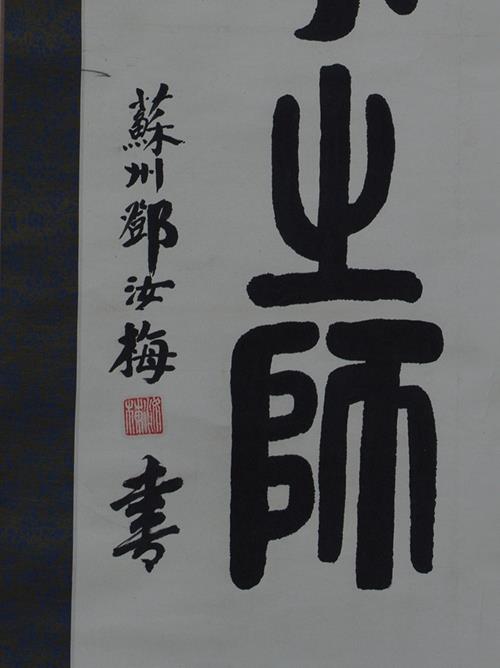 之師
蘇州鄧汝梅書